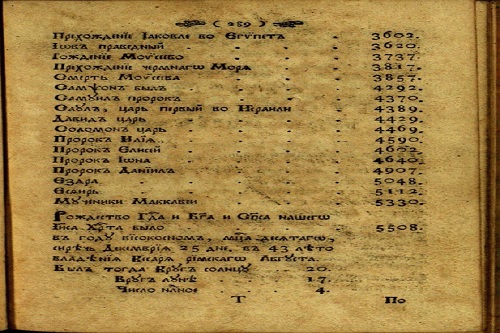 ( 259 )
Прехожденїе Іаковле во Егѵпетъ 3602.
Іѡвъ праведный 3620.
Рожденїе Моѵсеѡво 3737.
Прехожденїе чермнагѡ Морѧ 3817.
Смерть Моѵсеѡва 3857.
Самѱонъ былъ 4292.
Самуилъ пророкъ 4370.
Саулъ, царь первый во Ісраили 4389.
Давидъ царь 4429.
Соломонъ царь 4469.
Пророкъ Илїѧ 4590.
Пророкъ Елисей 4602
Пророкъ Іѡна 4640.
Пророкъ Данїилъ 4907.
Ездра 5048.
Есѳирь 5112.
Мученики Маккавеи 5330.
Рождество Гда и Бга и Спса нашегѡ
Іиса Хрта было 5508.
въ году високосномъ, мца десѧтагѡ,
сирѣчь Декемврїа 25 днѧ. въ 43 лѣто
владѣнїѧ Кесарѧ римскагѡ Августа.
Былъ тогда Кругъ солнцу 20.
Кругъ лунѣ 17.
Число 4.
Т По